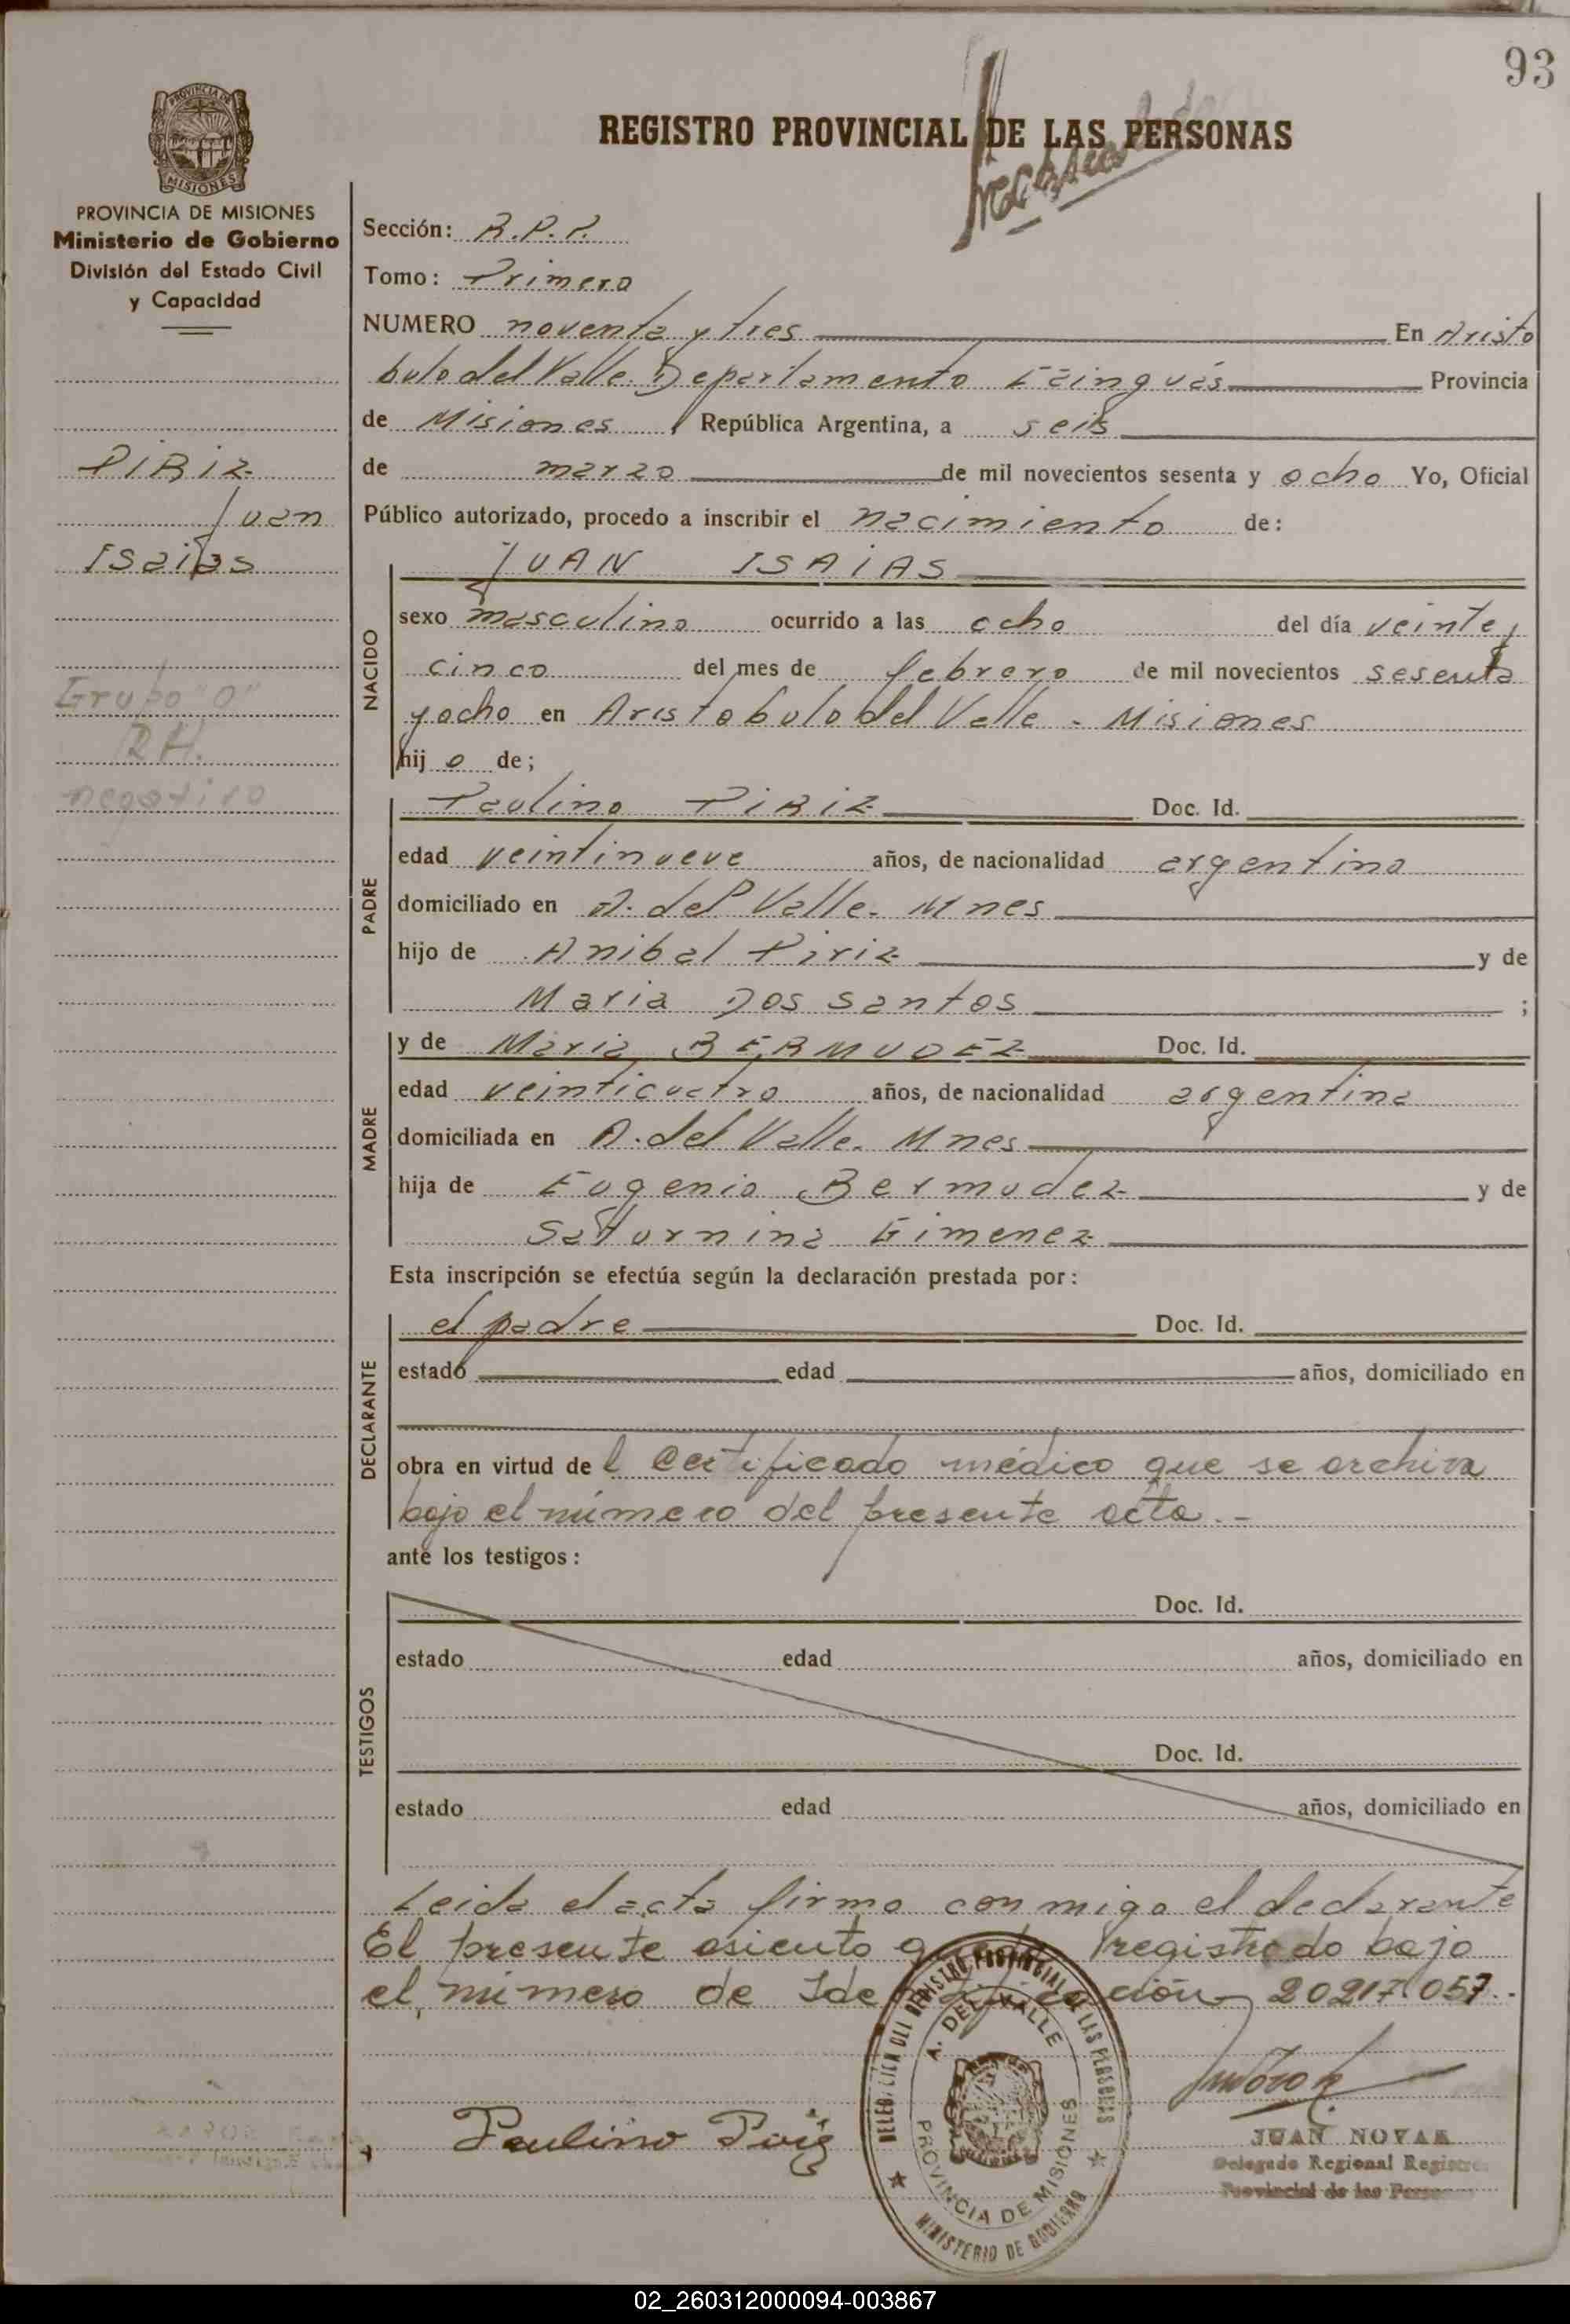 93
REGISTRO PROVINCIAL DE LAS PERSONAS
PROVINCIA DE MISIONES
Ministerio de Gobierno
División del Estado Civil
y Capacidad
PIRIZ
Juan
Isaias
Grupo "O"
RH.
negativo
Sección: R.P.P.
Tomo: Primero
NUMERO noventa y tres En Aristo
bulo del Valle Departamento Cainguás Provincia
de Misiones, República Argentina, a seis
de marzo de mil novecientos sesenta y ocho Yo, Oficial
Público autorizado, procedo a inscribir el nacimiento de:
JUAN ISAIAS
NACIDO
sexo masculino ocurrido a las ocho del día veinte y
cinco del mes de febrero de mil novecientos sesenta
y ocho en Aristobulo del Valle - Misiones
hij o de;
PADRE
Paulino PIRIZ Doc. Id.
edad veintinueve años, de nacionalidad argentino
domiciliado en A. del Valle. Mnes
hijo de Anibal Piriz y de
Maria Dos santos ;
MADRE
y de Maria BERMUDEZ Doc. Id.
edad veinticuatro años, de nacionalidad argentina
domiciliada en A. del Valle. Mnes
hija de Eugenio Bermudez y de
Saturnina Gimenez
Esta inscripción se efectúa según la declaración prestada por:
DECLARANTE
el padre Doc. Id.
estado edad años, domiciliado en
obra en virtud de l certificado médico que se archiva
bajo el número del presente acta.-
ante los testigos:
TESTIGOS
Doc. Id.
estado edad años, domiciliado en
Doc. Id.
estado edad años, domiciliado en
Leida el acta firma conmigo el declarante
El presente asiento registrado bajo
el número de Identificación 20217057.-
DELEGACION DEL REGISTRO PROVINCIAL DE LAS PERSONAS
A. DEL VALLE
PROVINCIA DE MISIONES
MINISTERIO DE GOBIERNO
Paulino Piriz
JUAN NOVAK
Delegado Regional Registro
Provincial de las Personas
02_260312000094-003867